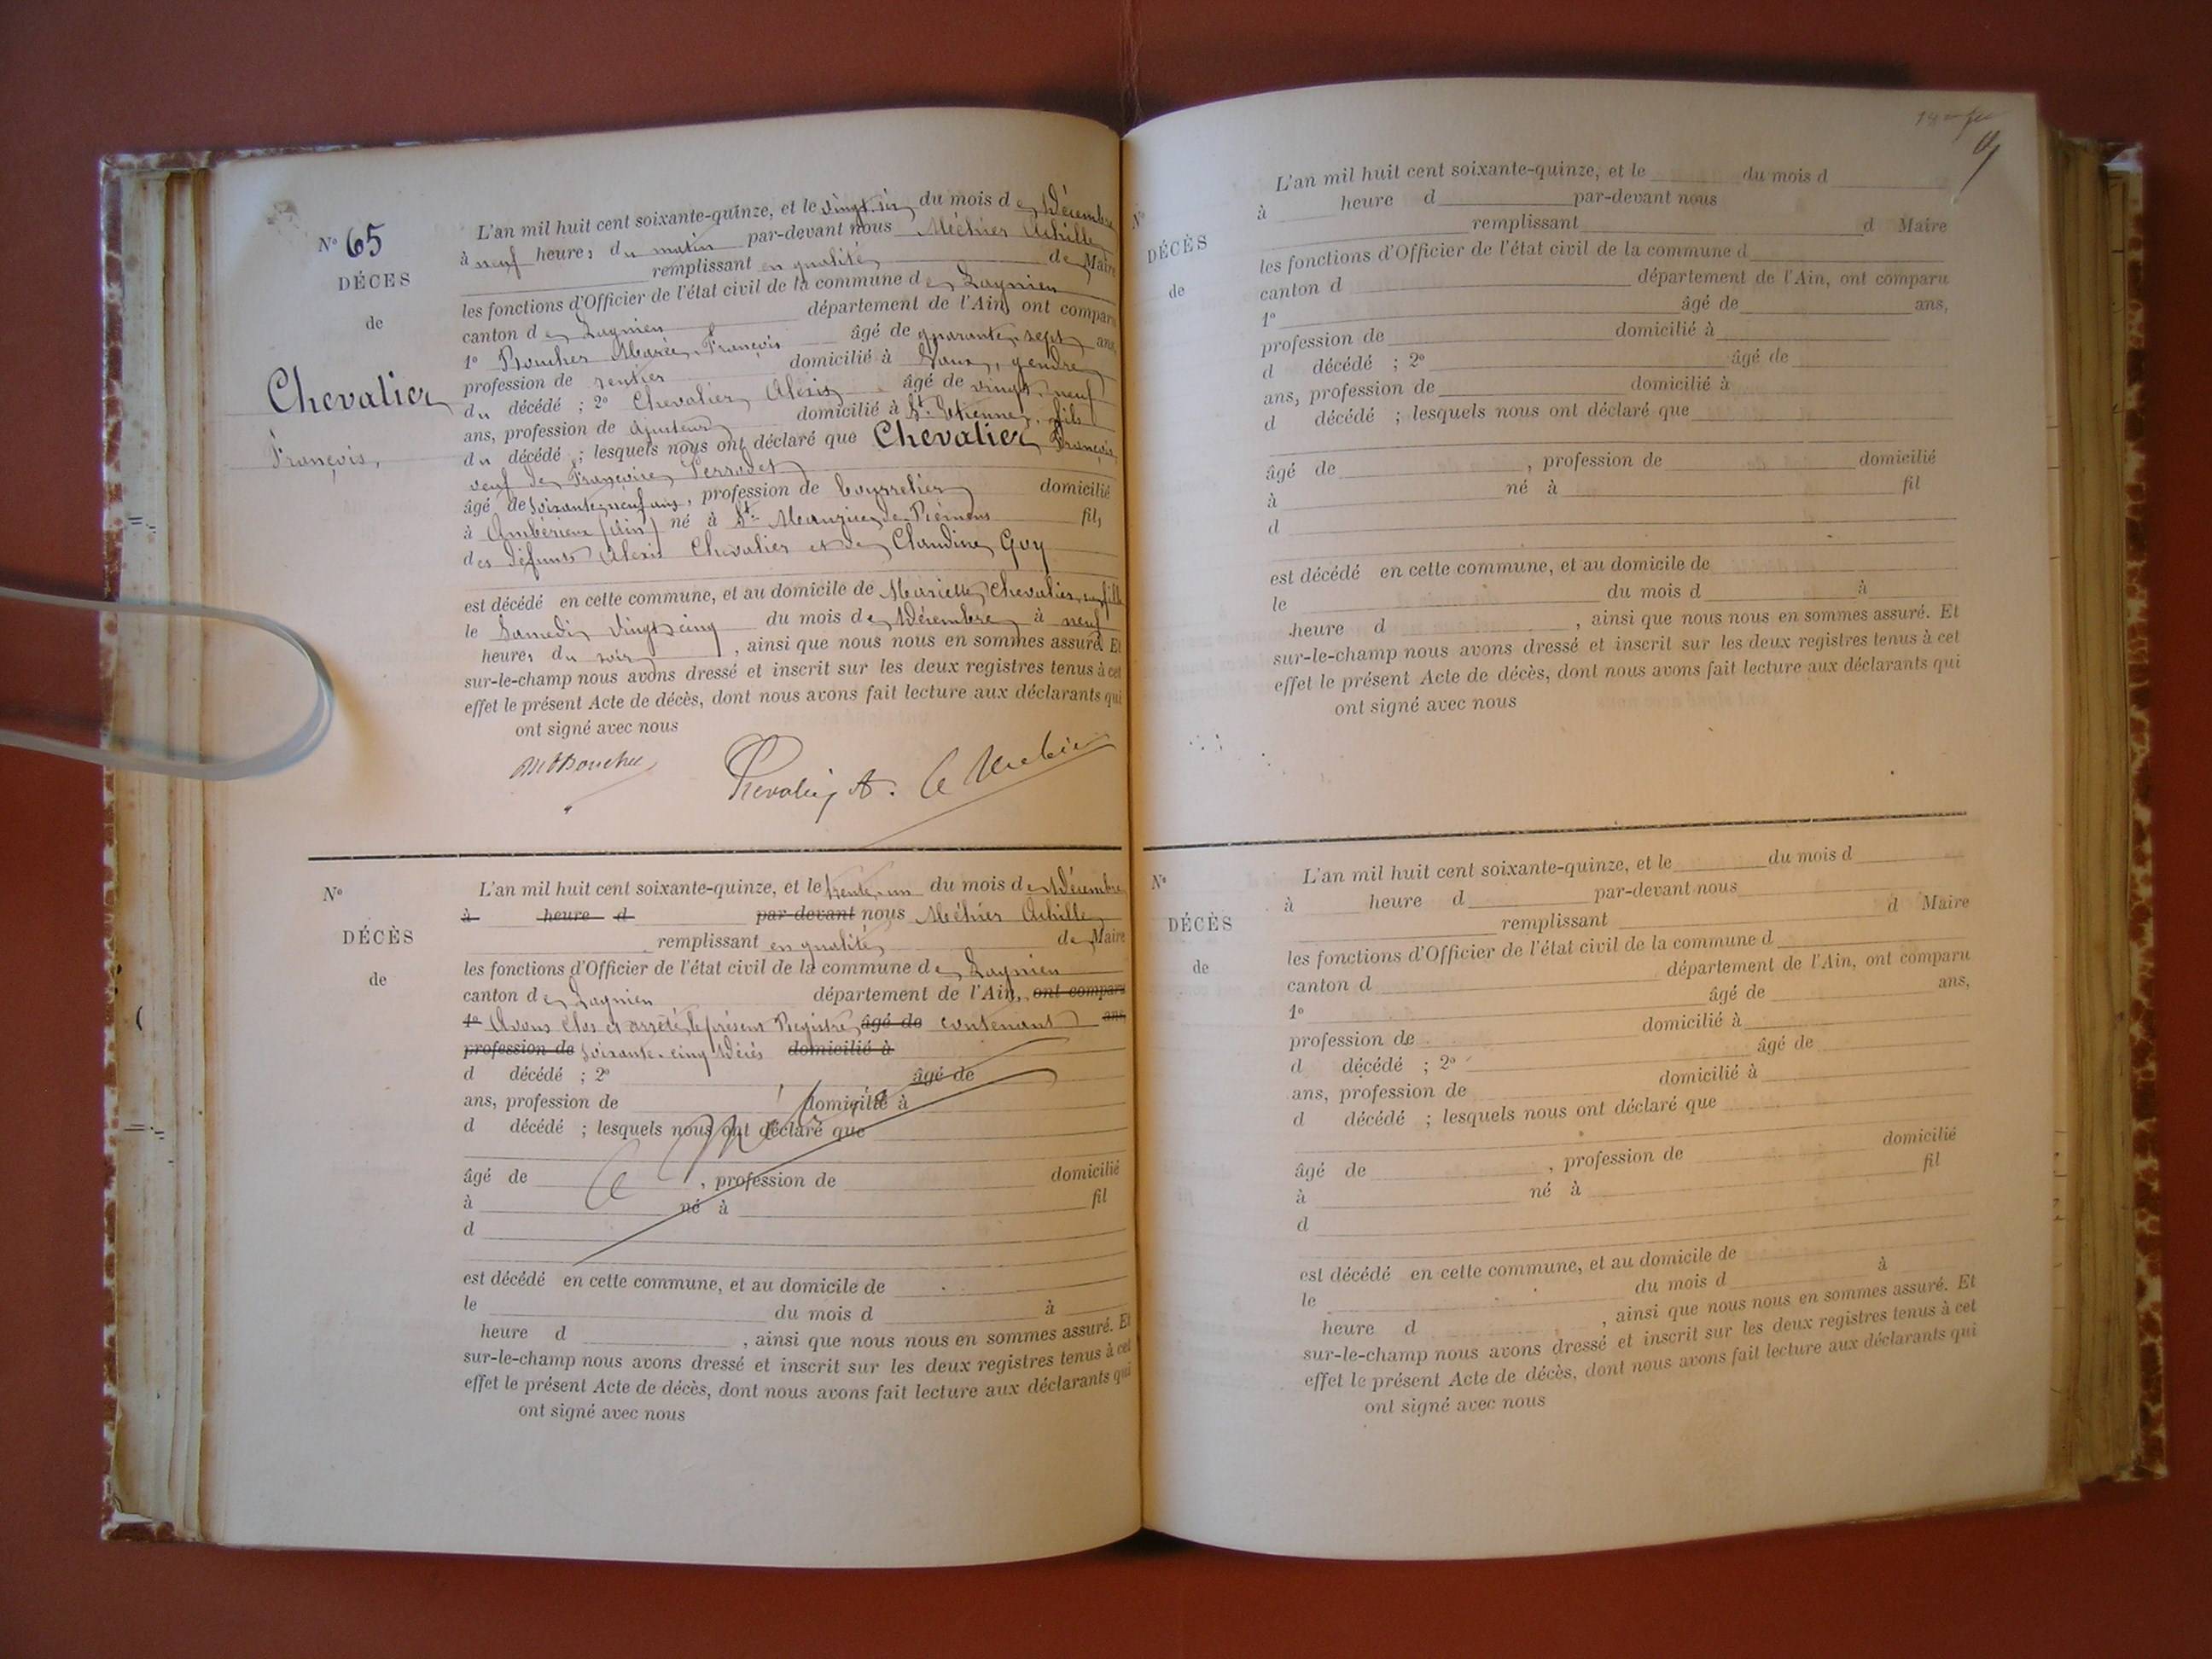 N° 65
DÉCÈS
de
Chevalier
François,
L'an mil huit cent soixante-quinze, et le vingt-six du mois de Décembre
à neuf heures du matin par-devant nous Méhier Achille
remplissant en qualité de Maire
les fonctions d'Officier de l'état civil de la commune de Lagnieu
canton de Lagnieu département de l'Ain, ont comparu
1° Boucher Marie, François âgé de quarante-sept ans,
profession de rentier domicilié à Vaux, gendre
du décédé ; 2° Chevalier Alexis âgé de vingt-neuf
ans, profession de ajusteur domicilié à St. Etienne, fils
du décédé ; lesquels nous ont déclaré que Chevalier François,
veuf de Françoise Perrodet
âgé de soixante-neuf ans, profession de bourrelier domicilié
à Ambérieu (Ain) né à St. Maurice-de-Rémens fils
des défunts Alexis Chevalier et de Claudine Guy
est décédé en cette commune, et au domicile de Mariette Chevalier, sa fille
le Samedi vingt-cinq du mois de Décembre à neuf
heures du soir, ainsi que nous nous en sommes assuré. Et
sur-le-champ nous avons dressé et inscrit sur les deux registres tenus à cet
effet le présent Acte de décès, dont nous avons fait lecture aux déclarants qui
ont signé avec nous
Chevalier A.
N°
DÉCÈS
de
L'an mil huit cent soixante-quinze, et le trente-un du mois de Décembre
à heure d par-devant nous Méhier Achille
remplissant en qualité de Maire
les fonctions d'Officier de l'état civil de la commune de Lagnieu
canton de Lagnieu département de l'Ain, ont comparu
1° Avons clos et arrêté le présent Registre âgé de contenant ans,
profession de soixante-cinq Décès domicilié à
d décédé ; 2° âgé de
ans, profession de domicilié à
d décédé ; lesquels nous ont déclaré que
âgé de , profession de domicilié
à né à fil
d
est décédé en cette commune, et au domicile de
le du mois d à
heure d , ainsi que nous nous en sommes assuré. Et
sur-le-champ nous avons dressé et inscrit sur les deux registres tenus à cet
effet le présent Acte de décès, dont nous avons fait lecture aux déclarants qui
ont signé avec nous
N°
DÉCÈS
de
L'an mil huit cent soixante-quinze, et le du mois d
à heure d par-devant nous
remplissant d Maire
les fonctions d'Officier de l'état civil de la commune d
canton d département de l'Ain, ont comparu
1° âgé de ans,
profession de domicilié à
d décédé ; 2° âgé de
ans, profession de domicilié à
d décédé ; lesquels nous ont déclaré que
âgé de , profession de domicilié
à né à fil
d
est décédé en cette commune, et au domicile de
le du mois d à
heure d , ainsi que nous nous en sommes assuré. Et
sur-le-champ nous avons dressé et inscrit sur les deux registres tenus à cet
effet le présent Acte de décès, dont nous avons fait lecture aux déclarants qui
ont signé avec nous
N°
DÉCÈS
de
L'an mil huit cent soixante-quinze, et le du mois d
à heure d par-devant nous
remplissant d Maire
les fonctions d'Officier de l'état civil de la commune d
canton d département de l'Ain, ont comparu
1° âgé de ans,
profession de domicilié à
d décédé ; 2° âgé de
ans, profession de domicilié à
d décédé ; lesquels nous ont déclaré que
âgé de , profession de domicilié
à né à fil
d
est décédé en cette commune, et au domicile de
le du mois d à
heure d , ainsi que nous nous en sommes assuré. Et
sur-le-champ nous avons dressé et inscrit sur les deux registres tenus à cet
effet le présent Acte de décès, dont nous avons fait lecture aux déclarants qui
ont signé avec nous